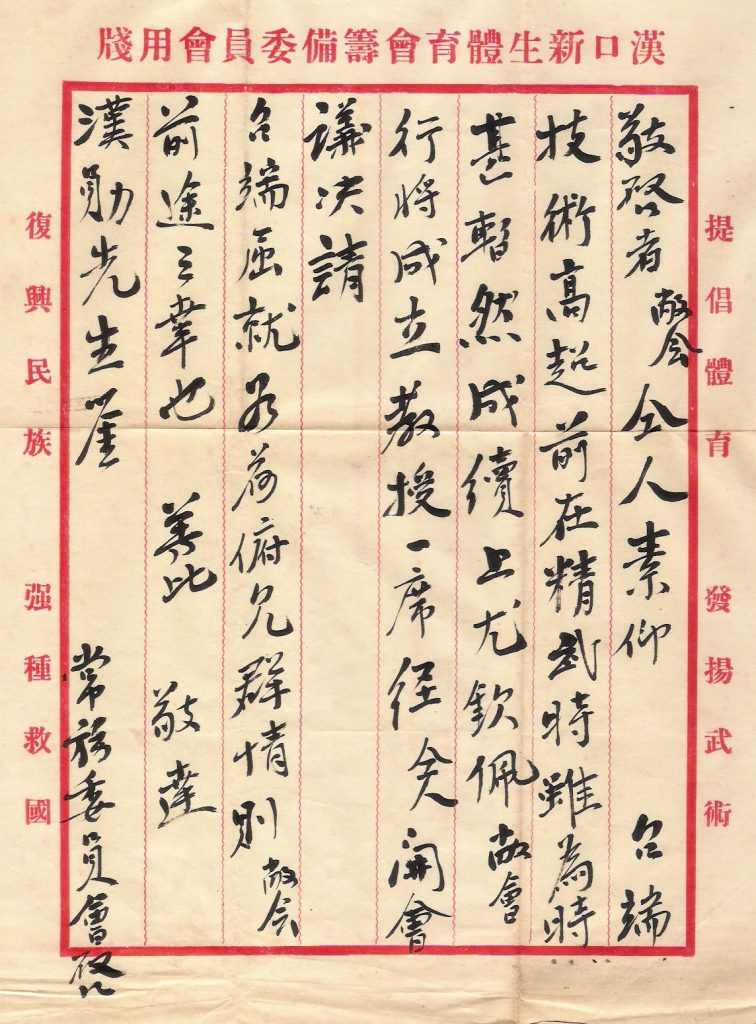 漢口新生體育會籌備委員會用牋
提倡體育 發揚武術
敬啓者敝会仝人素仰 台端
技術高超前在精武時雖為時
甚暫然成績上尤欽佩敝會
行將成立教授一席経矣開會
議决請
台端屈就如荷俯允群情則敝会
前途之幸也 耑此 敬達
漢勛先生鉴
常務委員會啓
復興民族 强種救國